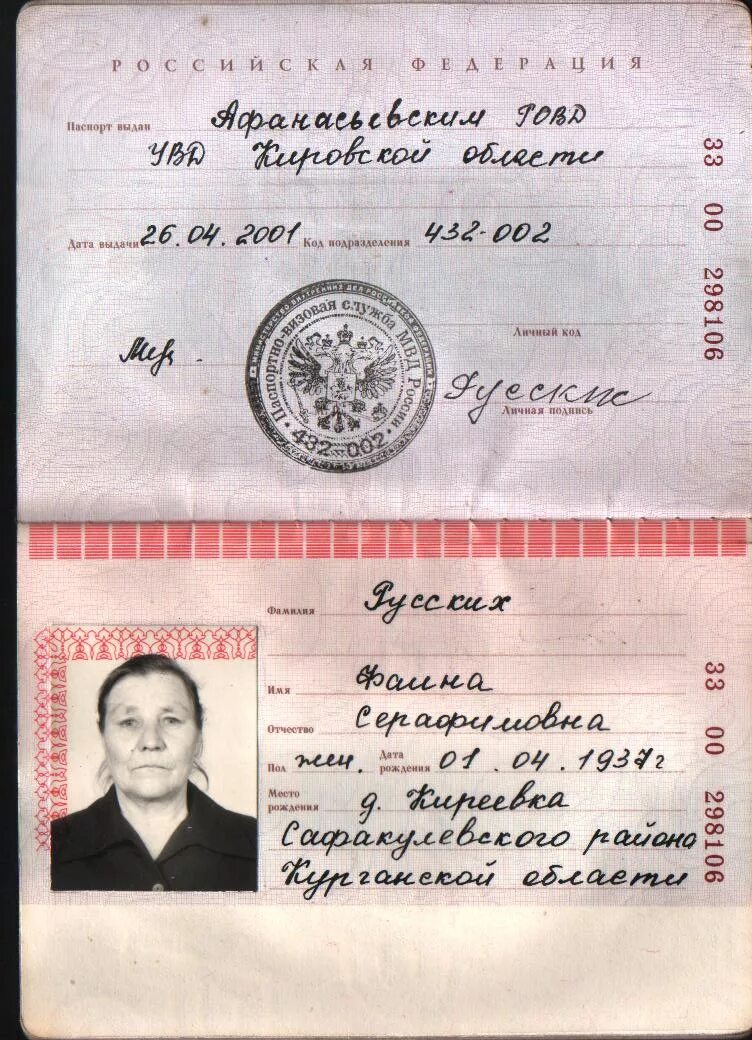 РОССИЙСКАЯ ФЕДЕРАЦИЯ
Паспорт выдан Афанасьевским РОВД
УВД Кировской области
Дата выдачи 26.04.2001 Код подразделения 432-002
33 00 298106
Личный код
Паспортно-визовая служба МВД России
432-002
Русских
Личная подпись
Фамилия Русских
Имя Фаина
Отчество Серафимовна
Пол жен. Дата рождения 01.04.1937г
Место рождения д. Киреевка
Сафакулевского района
Курганской области
33 00 298106